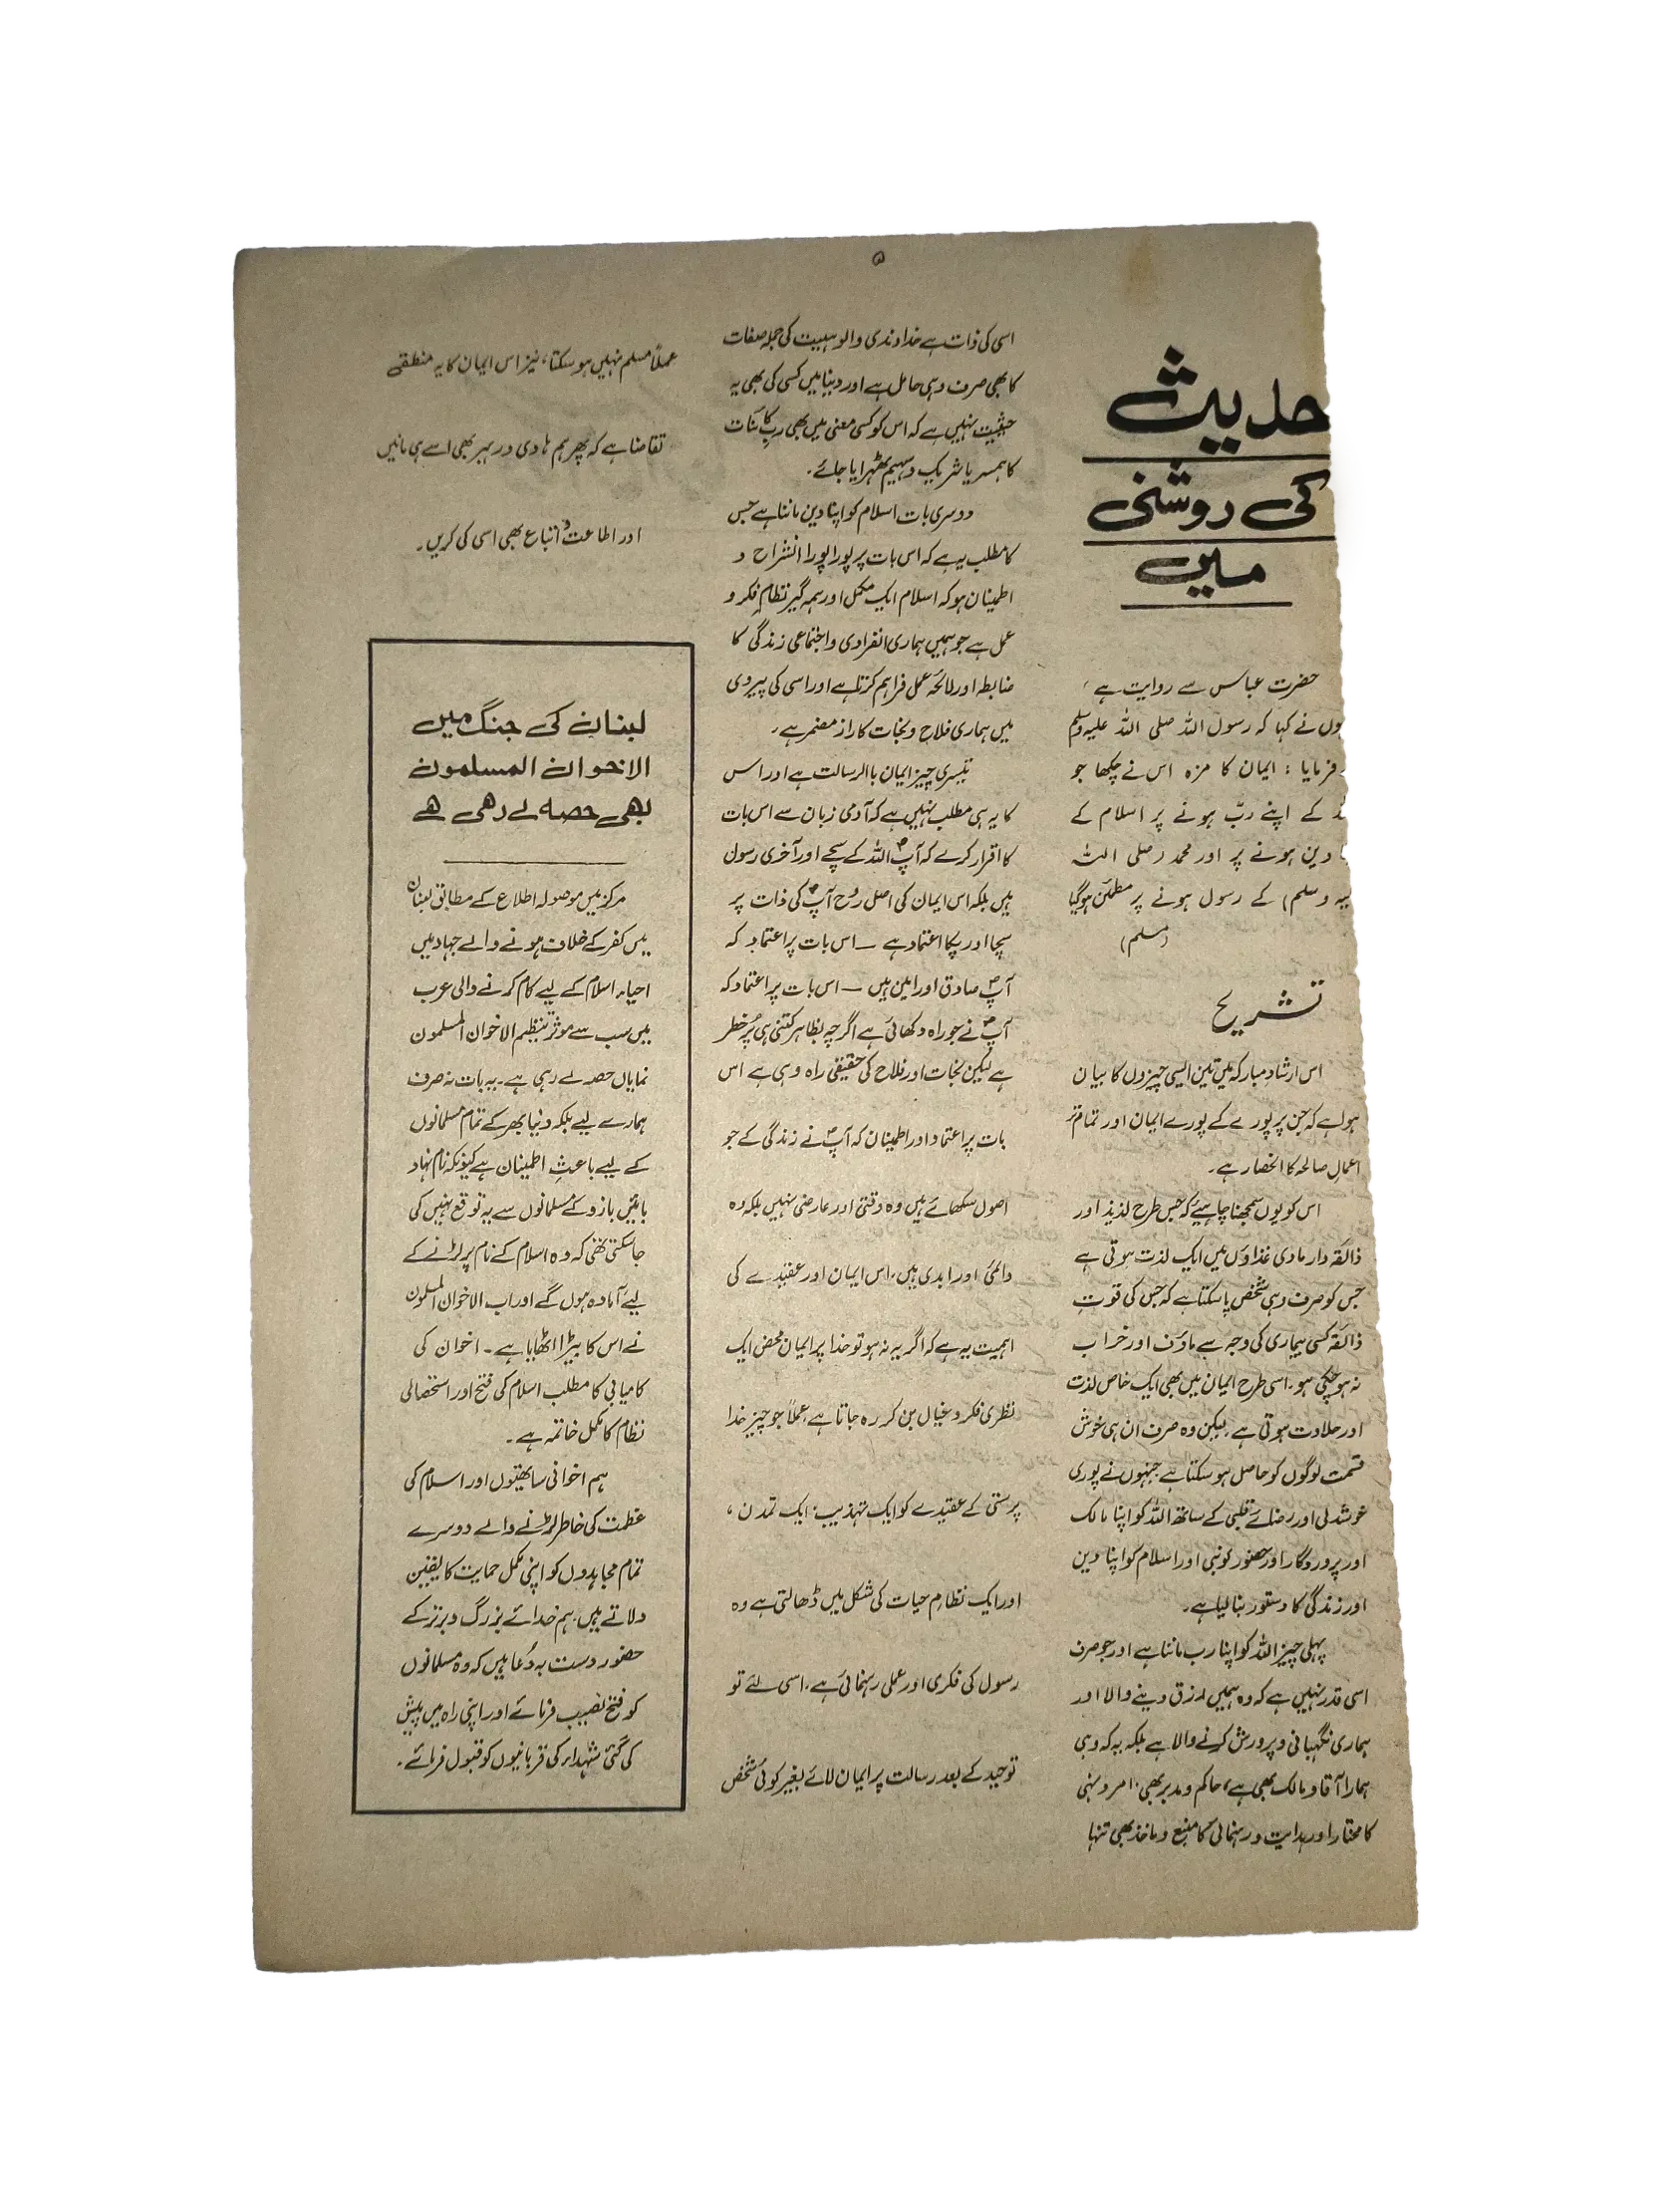 ۵
حدیث
کی روشنی
میں
حضرت عباس سے روایت ہے،
نے کہا کہ رسول اللہ صلی اللہ علیہ وسلم
فرمایا : ایمان کا مزہ اس نے چکھا جو
کے اپنے ربّ ہونے پر اسلام کے
دین ہونے پر اور محمد (صلی اللہ
وسلم) کے رسول ہونے پر مطمئن ہوگیا
(مسلم)
تشریح
اس ارشاد مبارکہ میں تین ایسی چیزوں کا بیان
ہوا ہے کہ جن پر پورے کے پورے ایمان اور تمام تر
اعمالِ صالحہ کا انحصار ہے۔
اس کو یوں سمجھنا چاہیئے کہ جس طرح لذیذ اور
ذائقہ دار مادی غذاؤں میں ایک لذت ہوتی ہے
جس کو صرف وہی شخص پا سکتا ہے کہ جس کی قوتِ
ذائقہ کسی بیماری کی وجہ سے ماؤف اور خراب
نہ ہو چکی ہو۔ اسی طرح ایمان میں بھی ایک خاص لذت
اور حلاوت ہوتی ہے لیکن وہ صرف ان ہی خوش
قسمت لوگوں کو حاصل ہو سکتا ہے جنہوں نے پوری
خوشدلی اور رضائے قلبی کے ساتھ اللہ کو اپنا مالک
اور پروردگار اور حضور کو نبی اور اسلام کو اپنا دین
اور زندگی کا دستور بنا لیا ہے۔
پہلی چیز اللہ کو اپنا رب ماننا ہے اور جو صرف
اسی قدر نہیں ہے کہ وہ ہمیں رزق دینے والا اور
ہماری نگہبانی و پرورش کرنے والا ہے بلکہ یہ کہ وہی
ہمارا آقا و مالک بھی ہے، حاکم و مدبر بھی، امر و نہی
کا مختار اور ہدایت و رہنمائی کا منبع و ماخذ بھی تنہا
اسی کی ذات ہے خداوندی و الوہیت کی جملہ صفات
کا بھی صرف وہی حامل ہے اور دنیا میں کسی کی بھی یہ
حیثیت نہیں ہے کہ اس کو کسی معنی میں بھی ربِ کائنات
کا ہمسر یا شریک و سہیم ٹھہرایا جائے۔
دوسری بات اسلام کو اپنا دین ماننا ہے جس
کا مطلب یہ ہے کہ اس بات پر پورا پورا انشراح و
اطمینان ہو کہ اسلام ایک مکمل اور ہمہ گیر نظامِ فکر و
عمل ہے جو ہمیں ہماری انفرادی و اجتماعی زندگی کا
ضابطہ اور لائحہ عمل فراہم کرتا ہے اور اسی کی پیروی
میں ہماری فلاح و نجات کا راز مضمر ہے۔
تیسری چیز ایمان باالرسالت ہے اور اس
کا یہ ہی مطلب نہیں ہے کہ آدمی زبان سے اس بات
کا اقرار کرے کہ آپؐ اللہ کے سچے اور آخری رسول
ہیں بلکہ اس ایمان کی اصل روح آپؐ کی ذات پر
سچا اور پکا اعتماد ہے — اس بات پر اعتماد کہ
آپؐ صادق اور امین ہیں — اس بات پر اعتماد کہ
آپؐ نے جو راہ دکھائی ہے اگرچہ بظاہر کتنی ہی پُرخطر
ہے لیکن نجات اور فلاح کی حقیقی راہ وہی ہے اس
بات پر اعتماد اور اطمینان کہ آپؐ نے زندگی کے جو
اصول سکھائے ہیں وہ وقتی اور عارضی نہیں بلکہ وہ
دائمی اور ابدی ہیں۔ اس ایمان اور عقیدے کی
اہمیت یہ ہے کہ اگر یہ نہ ہو تو خدا پر ایمان محض ایک
نظری فکر و خیال بن کر رہ جاتا ہے، عملاً جو چیز خدا
پرستی کے عقیدے کو ایک تہذیب، ایک تمدن،
اور ایک نظامِ حیات کی شکل میں ڈھالتی ہے وہ
رسول کی فکری اور عملی رہنمائی ہے، اسی لئے تو
توحید کے بعد رسالت پر ایمان لائے بغیر کوئی شخص
عملاً مسلم نہیں ہو سکتا، نیز اس ایمان کا یہ منطقی
تقاضا ہے کہ پھر ہم ہادی و رہبر بھی اسے ہی مانیں
اور اطاعت و اتباع بھی اسی کی کریں۔
لبنان کی جنگ میں
الاخوان المسلمون
بھی حصہ لے رھی ھے
مرکز میں موصولہ اطلاع کے مطابق لبنان
میں کفر کے خلاف ہونے والے جہاد میں
احیاء اسلام کے لیے کام کرنے والی عرب
میں سب سے موثر تنظیم الاخوان المسلمون
نمایاں حصہ لے رہی ہے۔ یہ بات نہ صرف
ہمارے لیے بلکہ دنیا بھر کے تمام مسلمانوں
کے لیے باعثِ اطمینان ہے کیونکہ نام نہاد
بائیں بازو کے مسلمانوں سے یہ توقع نہیں کی
جا سکتی تھی کہ وہ اسلام کے نام پر لڑنے کے
لیے آمادہ ہوں گے اور اب الاخوان المسلمون
نے اس کا بیڑا اٹھایا ہے۔ اخوان کی
کامیابی کا مطلب اسلام کی فتح اور استحصالی
نظام کا مکمل خاتمہ ہے۔
ہم اخوانی ساتھیوں اور اسلام کی
عظمت کی خاطر لڑنے والے دوسرے
تمام مجاہدوں کو اپنی مکمل حمایت کا یقین
دلاتے ہیں۔ ہم خدائے بزرگ و برتر کے
حضور دست بہ دُعا ہیں کہ وہ مسلمانوں
کو فتح نصیب فرمائے اور اپنی راہ میں پیش
کی گئی شہداء کی قربانیوں کو قبول فرمائے۔